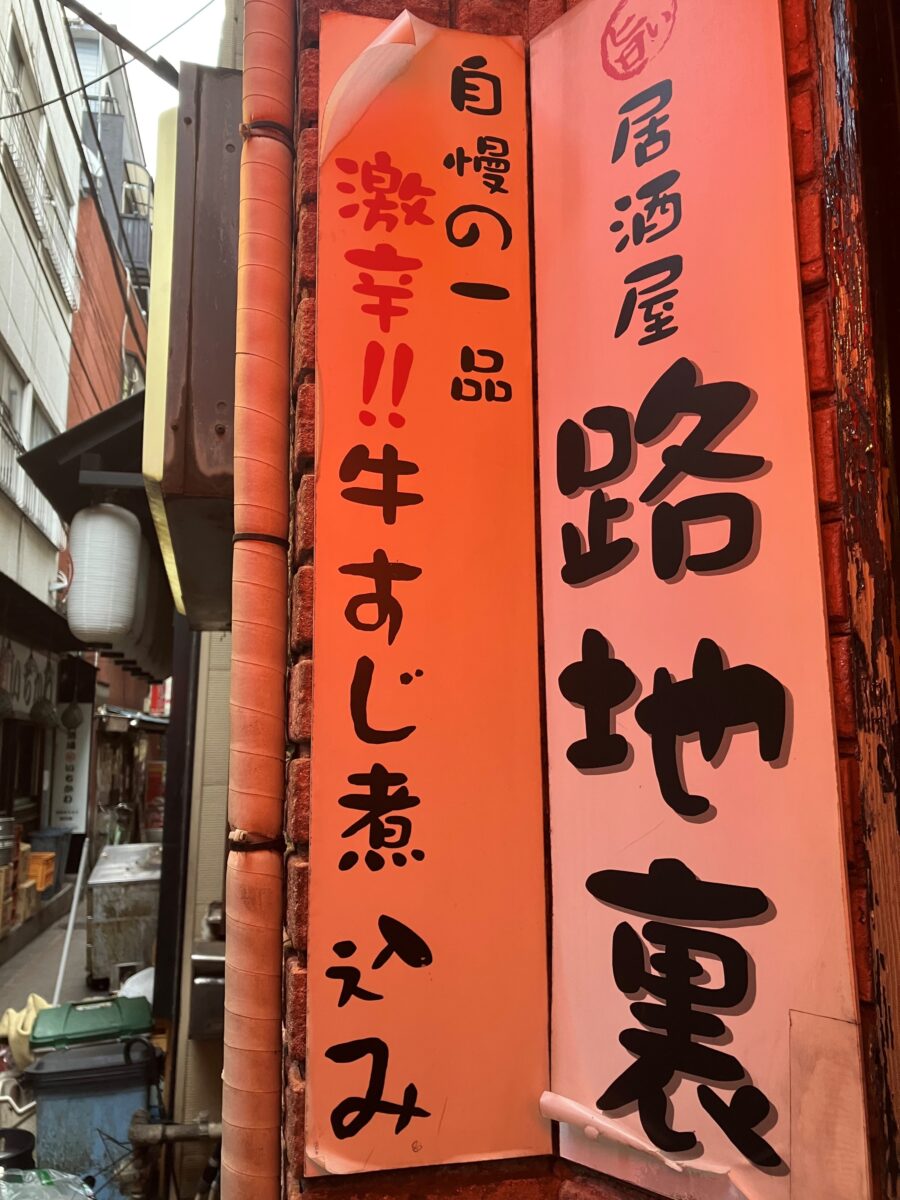 旨い
居酒屋
路地裏
自慢の一品
激辛!!牛すじ煮込み